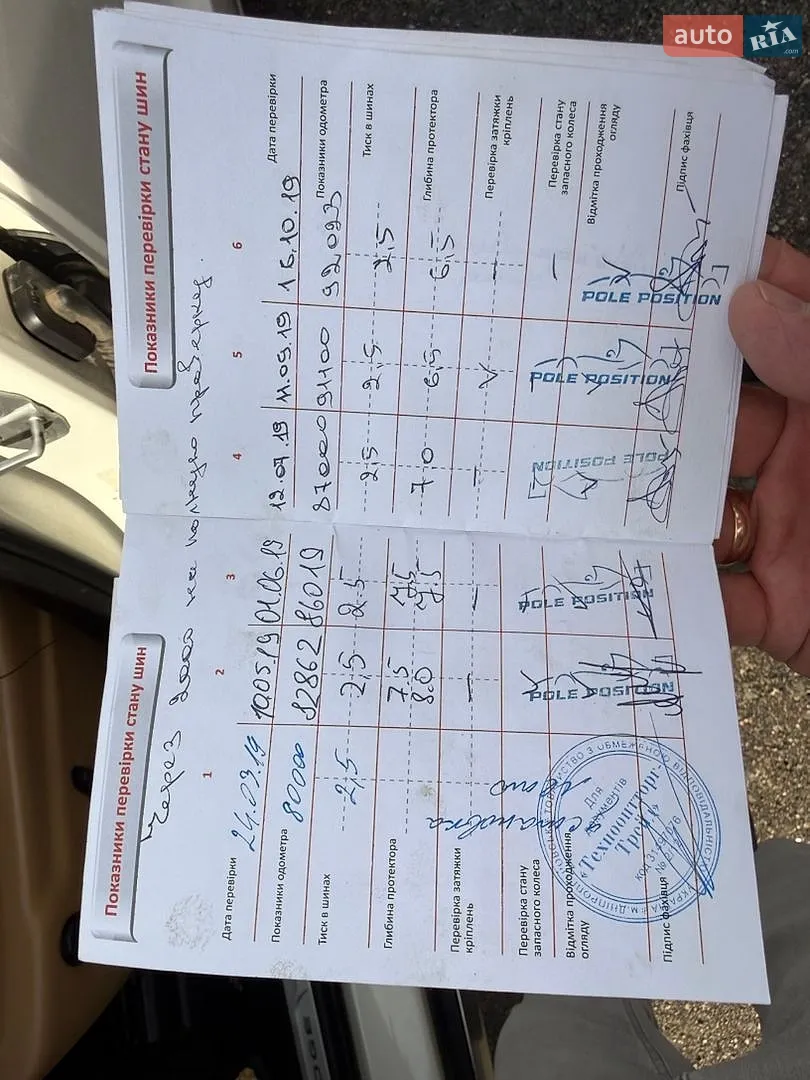 auto RIA.com
Показники перевірки стану шин
Через 2000 км
1 2 3
Дата перевірки 24.03.19 10.05.19 01.06.19
Показники одометра 80000 82862 86019
Тиск в шинах 2,5 2,5 2.5
Глибина протектора 7.5 8.0 7.5 7.5
Перевірка затяжки кріплень — —
Перевірка стану запасного колеса
Відмітка проходження огляду
POLE POSITION
POLE POSITION
Підпис фахівця
Для документів
"Техноопттург. Трейд"
Показники перевірки стану шин
4 5 6
12.07.19 11.09.19 16.10.19 Дата перевірки
87000 91100 92093 Показники одометра
2,5 2,5 2,5 Тиск в шинах
7,0 6,5 6,5 Глибина протектора
— V — Перевірка затяжки кріплень
— Перевірка стану запасного колеса
Відмітка проходження огляду
POLE POSITION
POLE POSITION
POLE POSITION
Підпис фахівця